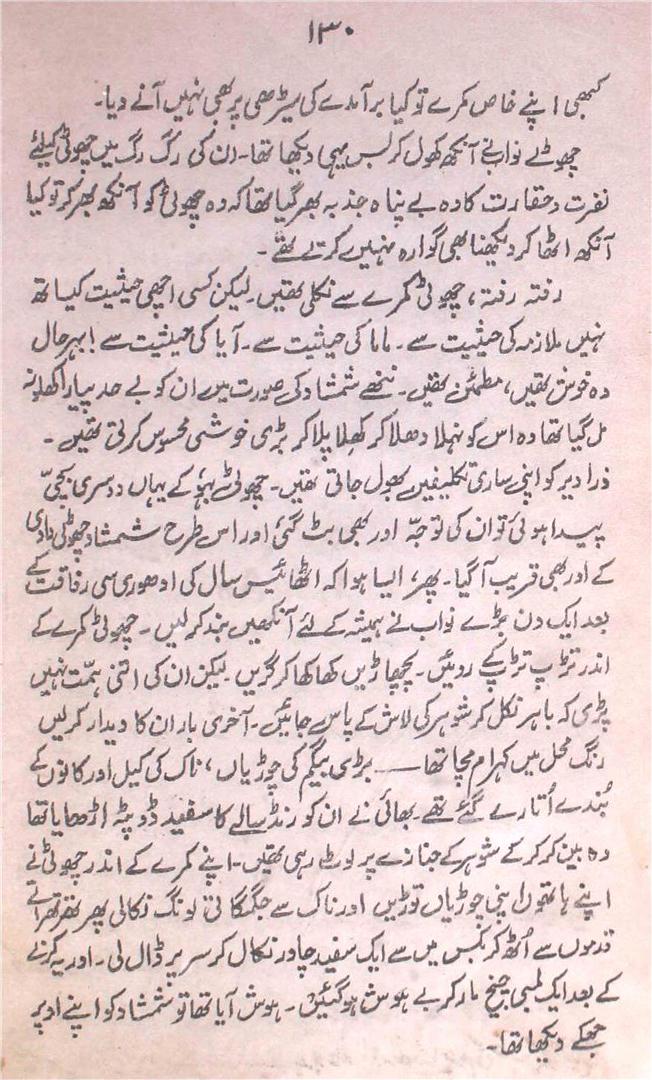 ۱۳۰
کبھی اپنے خاص کمرے تو کیا برآمدے کی سیڑھی پر بھی نہیں آنے دیا۔
چھوٹے نواب نے آنکھ کھول کر بس یہی دیکھا تھا۔ ان کی رگ رگ میں چھوٹی کیلئے
نفرت و حقارت کا وہ بے پناہ جذبہ بھر گیا تھا کہ وہ چھوٹی کو آنکھ بھر کر تو کیا
آنکھ اٹھا کر دیکھنا بھی گوارہ نہیں کرتے تھے۔
رفتہ رفتہ، چھوٹی کمرے سے نکلی تھیں۔ لیکن کسی اچھی حیثیت کیساتھ
نہیں ملازمہ کی حیثیت سے۔ ماما کی حیثیت سے۔ آیا کی حیثیت سے! بہرحال
وہ خوش تھیں، مطمئن تھیں۔ ننھے شمشاد کی صورت میں ان کو بے حد پیارا کھلونہ
مل گیا تھا وہ اس کو نہلا دھلا کر کھلا پلا کر بڑی خوشی محسوس کرتی تھیں۔
ذرا دیر کو اپنی ساری تکلیفیں بھول جاتی تھیں۔ چھوٹی بہو کے یہاں دوسری بچی
پیدا ہوئی تو ان کی توجہ اور بھی بٹ گئی اور اس طرح شمشاد چھوٹی دادی
کے اور بھی قریب آ گیا۔ پھر، ایسا ہوا کہ اٹھائیس سال کی ادھوری سی رفاقت کے
بعد ایک دن بڑے نواب نے ہمیشہ کے لئے آنکھیں بند کر لیں۔ چھوٹی کمرے کے
اندر تڑپ تڑپ کے روئیں۔ پچھاڑیں کھا کھا کر گریں۔ لیکن ان کی اتنی ہمّت نہیں
پڑی کہ باہر نکل کر شوہر کی لاش کے پاس جائیں۔ آخری بار ان کا دیدار کر لیں
رنگ محل میں کہرام مچا تھا —— بڑی بیگم کی چوڑیاں، ناک کی کیل اور کانوں کے
بُندے اُتارے گئے تھے۔ بھائی نے ان کو رنڈسالے کا سفید ڈوپٹہ اڑھایا تھا
وہ بین کر کر کے شوہر کے جنازے پر لوٹ رہی تھیں۔ اپنے کمرے کے اندر چھوٹی نے
اپنے ہاتھوں اپنی چوڑیاں توڑیں اور ناک سے جگمگاتی لونگ نکالی پھر تھرتھراتے
قدموں سے اُٹھ کر بکس میں سے ایک سفید چادر نکال کر سر پر ڈال لی۔ اور یہ کرنے
کے بعد ایک لمبی چیخ مار کر بے ہوش ہو گئیں۔ ہوش آیا تھا تو شمشاد کو اپنے اوپر
جھکے دیکھا تھا۔